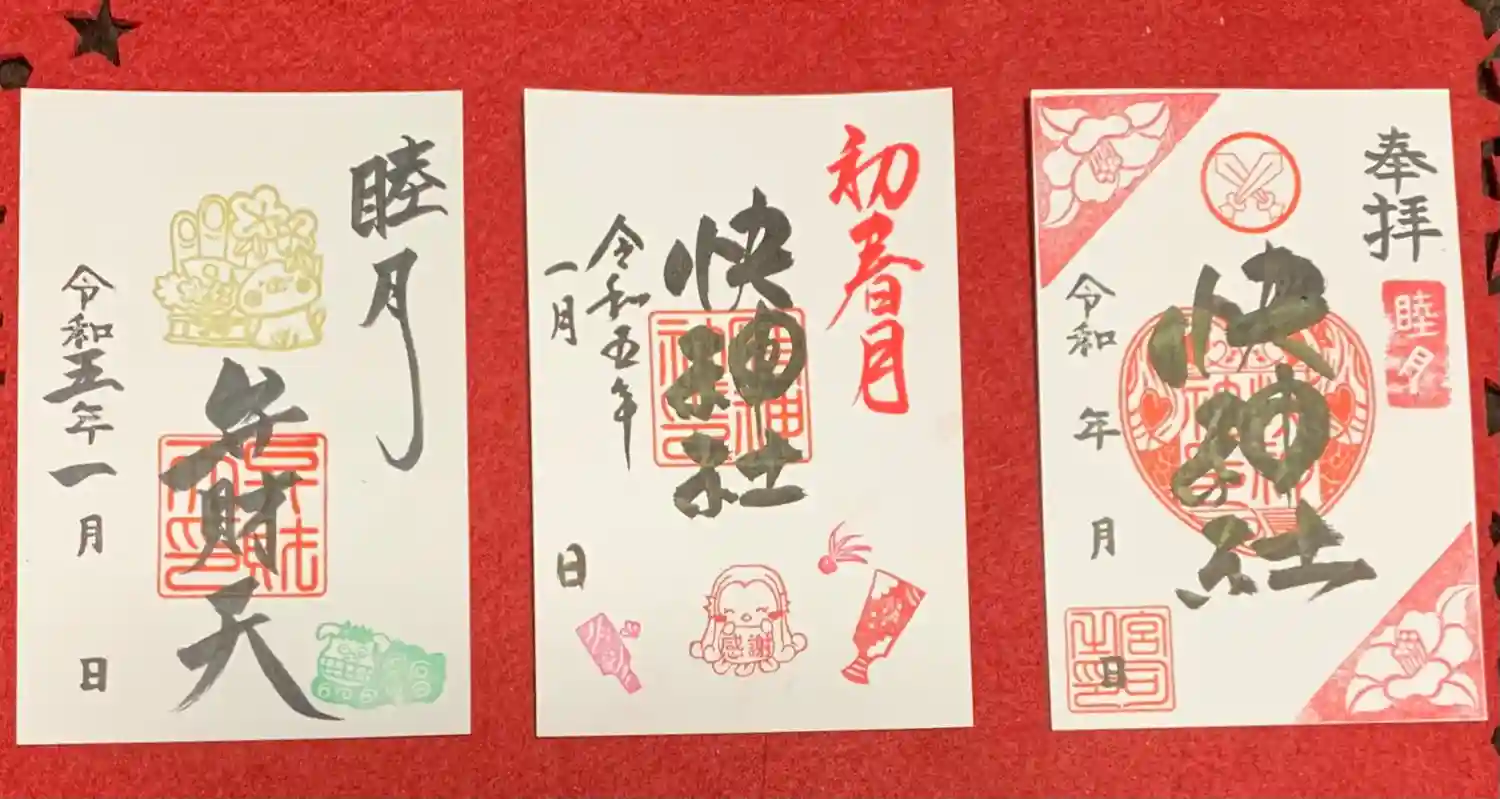 睦月
弁財天
令和五年一月 日
初春月
快神社
令和五年
一月
日
感謝
奉拝
睦月
快神社
令和 年 月 日